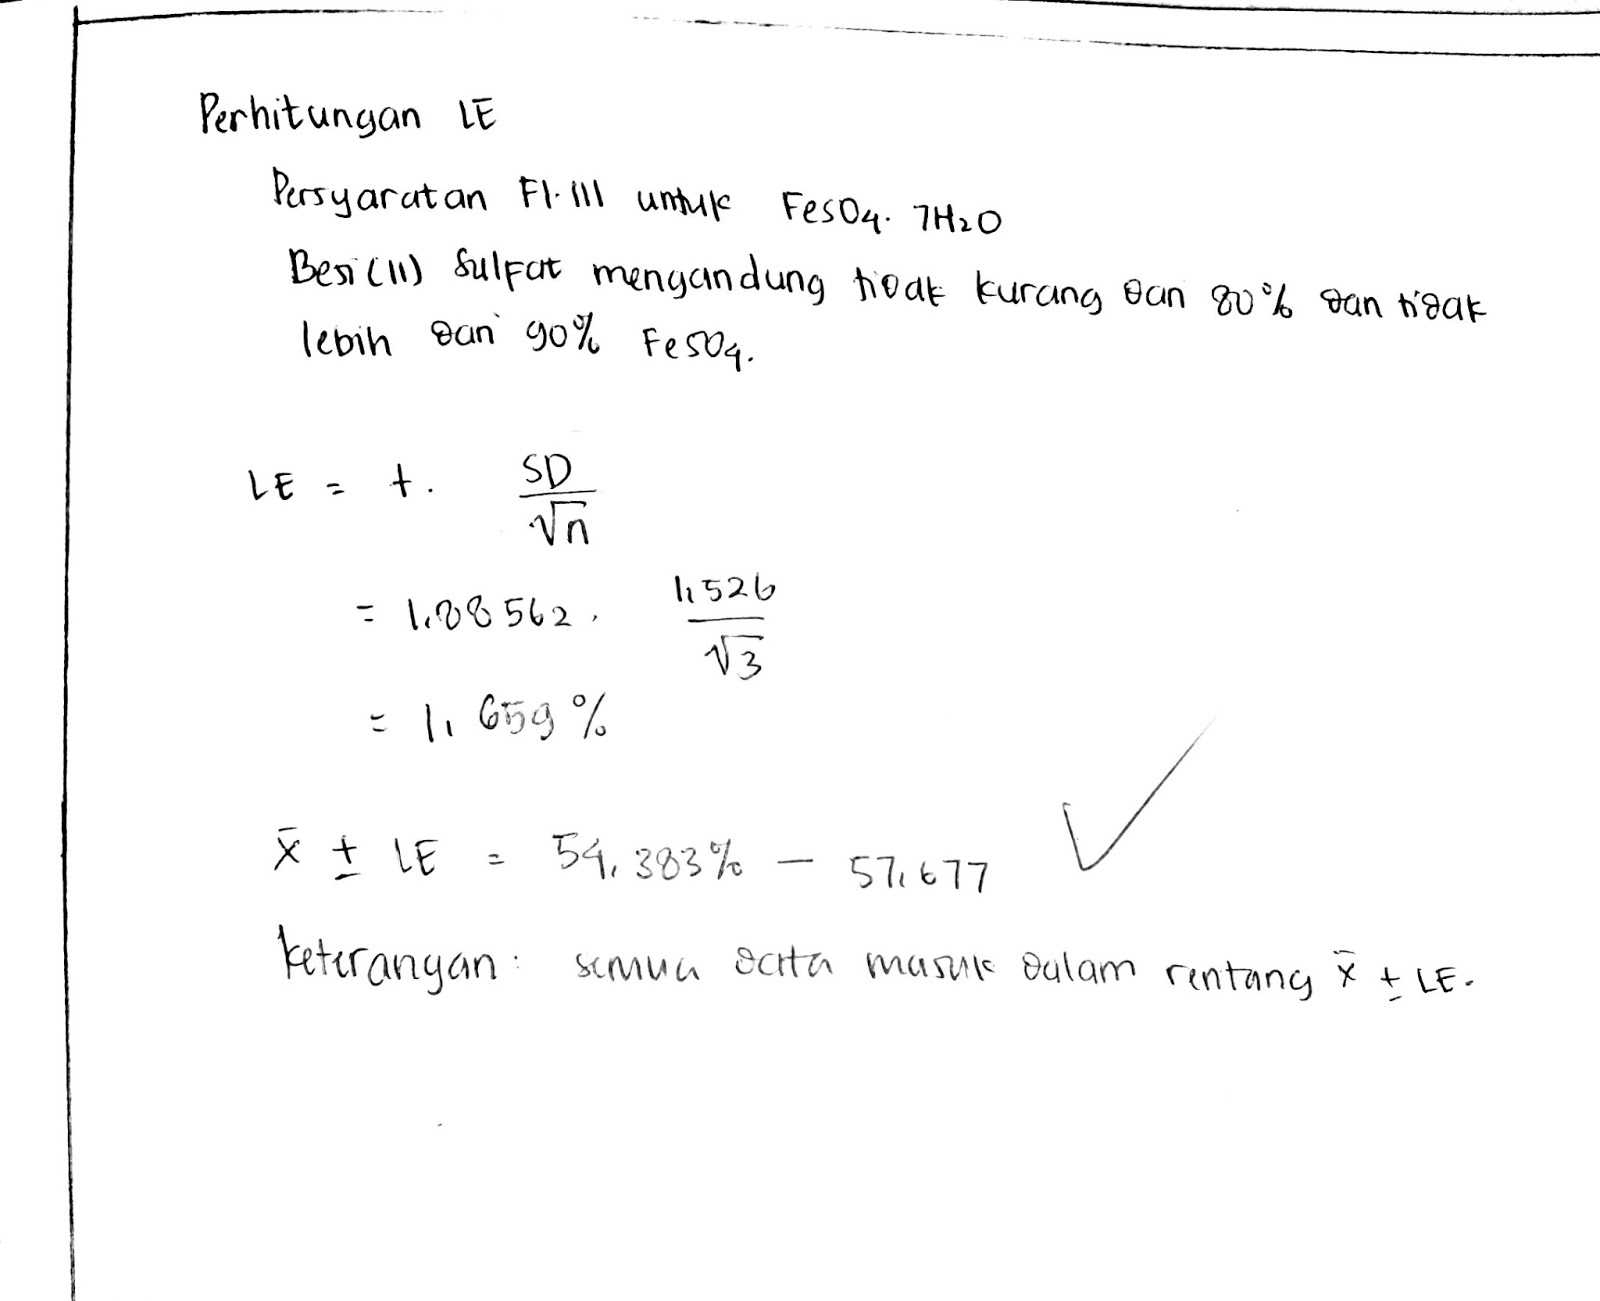 Perhitungan LE
Persyaratan FI.III untuk FeSO4. 7H2O
Besi (II) Sulfat mengandung tidak kurang dari 80% dan tidak
lebih dari 90% FeSO4.
LE = t. SD/√n
= 1,88562. 1,526/√3
= 1,659%
x̄ ± LE = 54,383% – 57,677
Keterangan: semua data masuk dalam rentang x̄ ± LE.